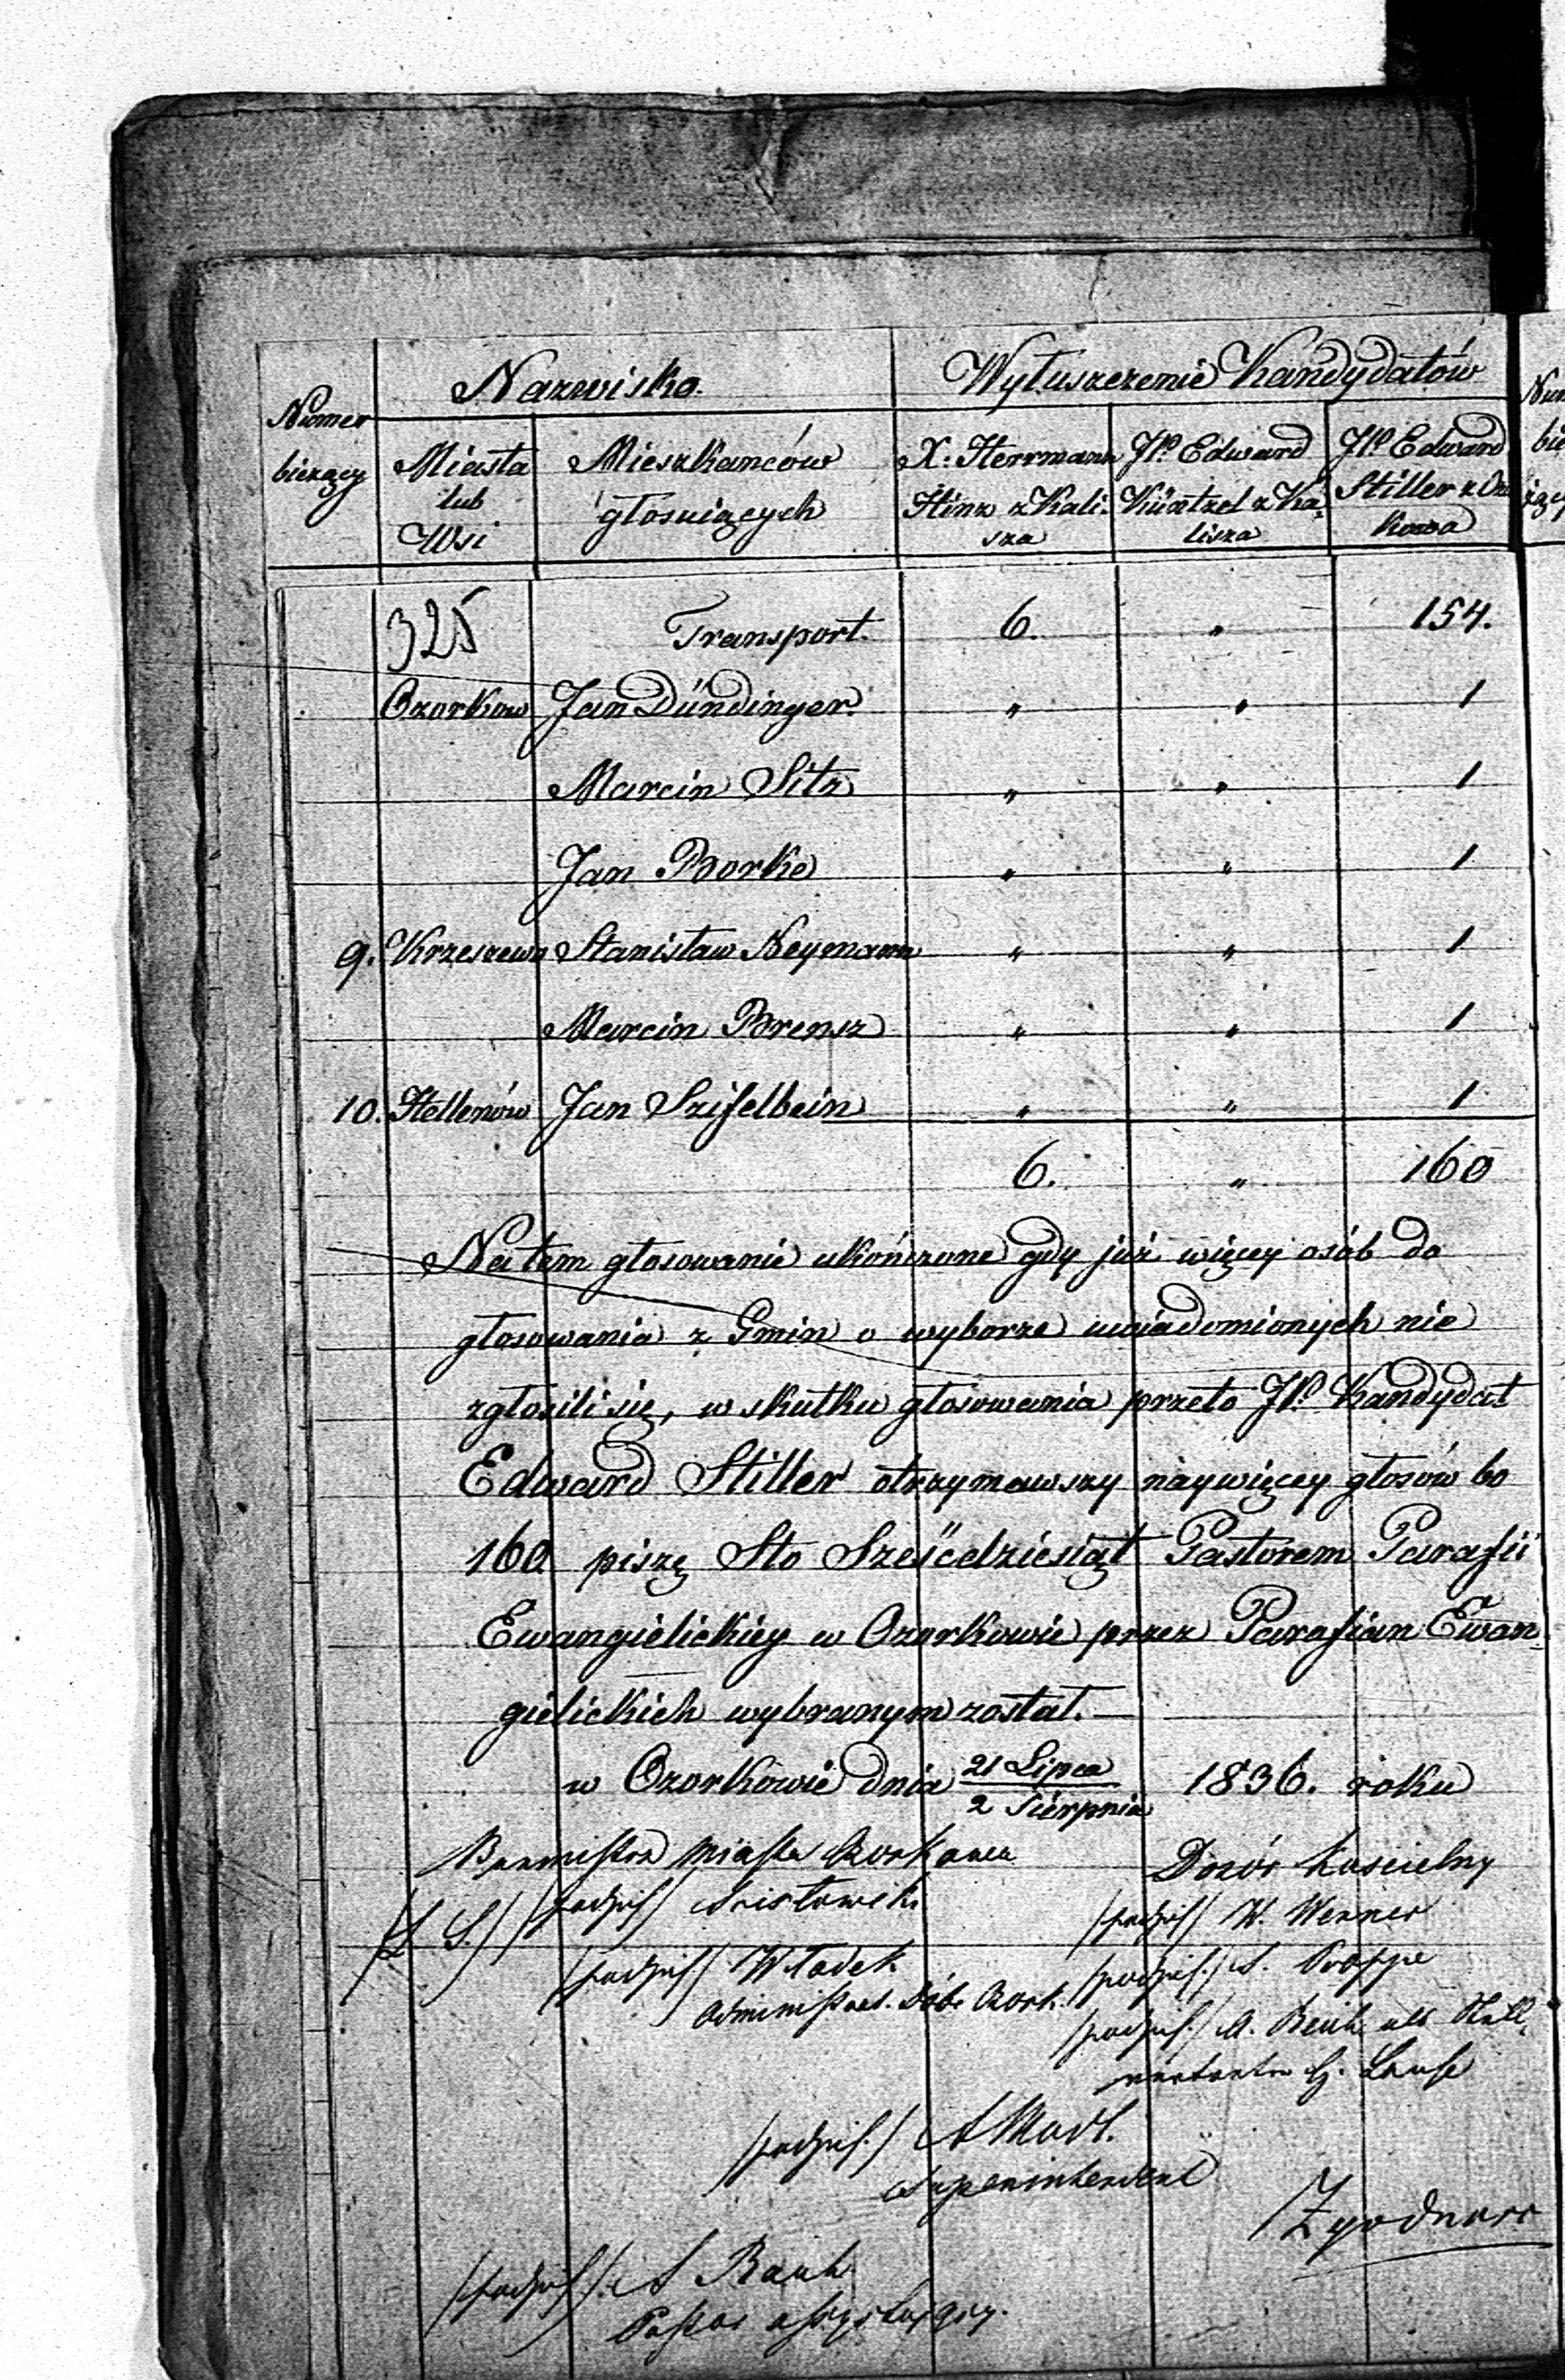 Numer bieżący | Nazwisko. | Wyłuszczenie Kandydatów
Miasta lub Wsi | Mieszkańców głosuiących | X. Herrmann Hinz z Kalisza | JP. Edward Küntzel z Kalisza | JP. Edward Stiller z Ozorkowa
325 Transport. 6. " 154.
Ozorkow Jan Dündinger. " " 1
Marcin Sitz " " 1
Jan Borke " " 1
9. Krzeszewo Stanisław Neymann " " 1
Marcin Brensz " " 1
10. Hellenów Jan Szifelbein " " 1
6. " 160
Na tem głosowanie ukończone gdy już więcey osób do
głosowania z Gmin o wyborze uwiadomionych nie
zgłosili się, w skutku głosowania przeto JP. Kandydat
Edward Stiller otrzymawszy naywięcey głosów bo
160 piszę Sto Sześćdziesiąt Pastorem Parafii
Ewangielickiey w Ozorkowie przez Parafian Ewan
gielickich wybranym został. —
w Ozorkowie dnia 21 Lipca / 2 Sierpnia 1836. roku
Burmistrz Miasta Ozorkowa
Dozór Kościelny
(L. S.) /podpis/
/podpis/ W. Werner
/podpis/ Władek
/podpis./ S.
Administrat. Dóbr Ozork.
/podpis./ A.
/podpis./
Superintendent
Zgodność
/podpis/
Pastor